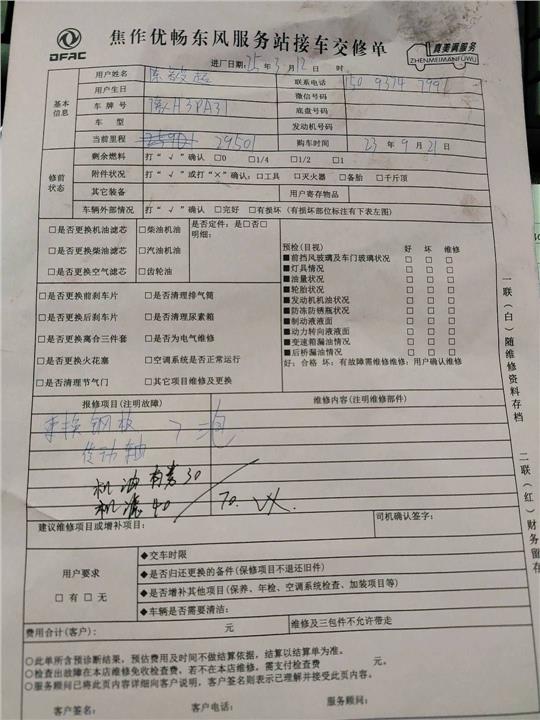 DFAC
焦作优畅东风服务站接车交修单
真美满服务
ZHENMEIMANFUWU
进厂日期: 25 年 3 月 12 日 时
基本信息
用户姓名 联系电话 150 9374 7991
用户生日 微信号码
车牌号 豫H3PA31 底盘号码
车型 发动机号码
当前里程 29501 购车时间 23 年 9 月 21 日
修前状态
剩余燃料 打“√”确认 □0 □1/4 □1/2 □1
附件状况 打“√”或打“×”确认: □工具 □灭火器 □备胎 □千斤顶
其它装备 用户寄存物品
车辆外部情况 打“√”确认 □完好 □有损坏 (有损坏部位标注有下表左图)
□是否更换机油滤芯 □柴油机油 是否定件: 是□否□
明细:
□是否更换柴油滤芯 □汽油机油
□是否更换空气滤芯 □齿轮油
预检(目视) 好 坏 维修
■前挡风玻璃及车门玻璃状况 □ □ □
■灯具情况 □ □ □
■油量状况 □ □ □
■轮胎状况 □ □ □
■发动机机油状况 □ □ □
■防冻防锈瓶状况 □ □ □
■制动液液面 □ □ □
■动力转向液液面 □ □ □
■变速箱漏油情况 □ □ □
■后桥漏油情况 □ □ □
好: 合格 坏: 有故障需维修维修: 用户确认维修
□是否更换前刹车片 □是否清理排气筒
□是否更换后刹车片 □是否清理尿素箱
□是否更换离合三件套 □是否为电气维修
□是否更换火花塞 □空调系统是否正常运行
□是否清理节气门 □其它项目维修及更换
报修项目(注明故障) 维修内容(注明维修部件)
更换钢板
传动轴
机油 30
机滤 40 70.
建议维修项目或增补项目: 司机确认签字:
用户要求
□有 □无
◆交车时限
◆是否归还更换的备件(保修项目不退还旧件)
◆是否增补其他项目(保养、年检、空调系统检查、加装项目等)
◆车辆是否需要清洁:
费用合计(客户): 元 维修及三包件不允许带走
○此单所含预诊断结果，预估费用及时间不做结算依据，结算以结算单为准。
○检查出故障在本店维修免收检查费，若不在本店维修，需支付检查费 元。
○服务顾问已将此页内容详细向客户说明，客户签名则表示已理解并接受此页内容。
客户签名: 客户电话: 服务顾问:
一联(白)随维修资料存档
二联(红)财务留存